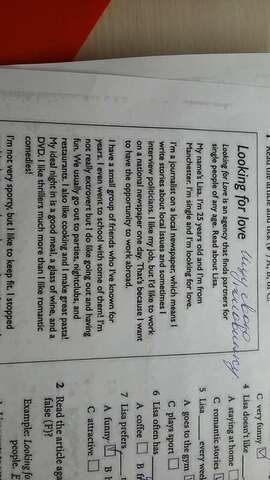 Looking for love
Looking for Love is an agency that finds partners for
single people of any age. Read about Lisa.
My name's Lisa, I'm 25 years old and I'm from
Manchester. I'm single and I'm looking for love.
I'm a journalist on a local newspaper, which means I
write stories about local issues and sometimes I
interview politicians. I like my job, but I'd like to work
on a national newspaper one day. That's because I want
to have the opportunity to work abroad.
I have a small group of friends who I've known for
years. I even went to school with some of them! I'm
not really extrovert but I do like going out and having
fun. We usually go out to parties, nightclubs, and
restaurants. I also like cooking and I make great pasta!
My ideal night in is a good meal, a glass of wine, and a
DVD. I like thrillers much more than I like romantic
comedies!
I'm not very sporty, but I like to keep fit. I stopped
C very funny
4 Lisa doesn't like
A staying at home
C romantic stories
5 Lisa ___ every week
A goes to the gym
C plays sport
6 Lisa often has
A coffee B
7 Lisa prefers
A funny B
C attractive
2 Read the article aga
false (F)?
Example: Looking fo
people.